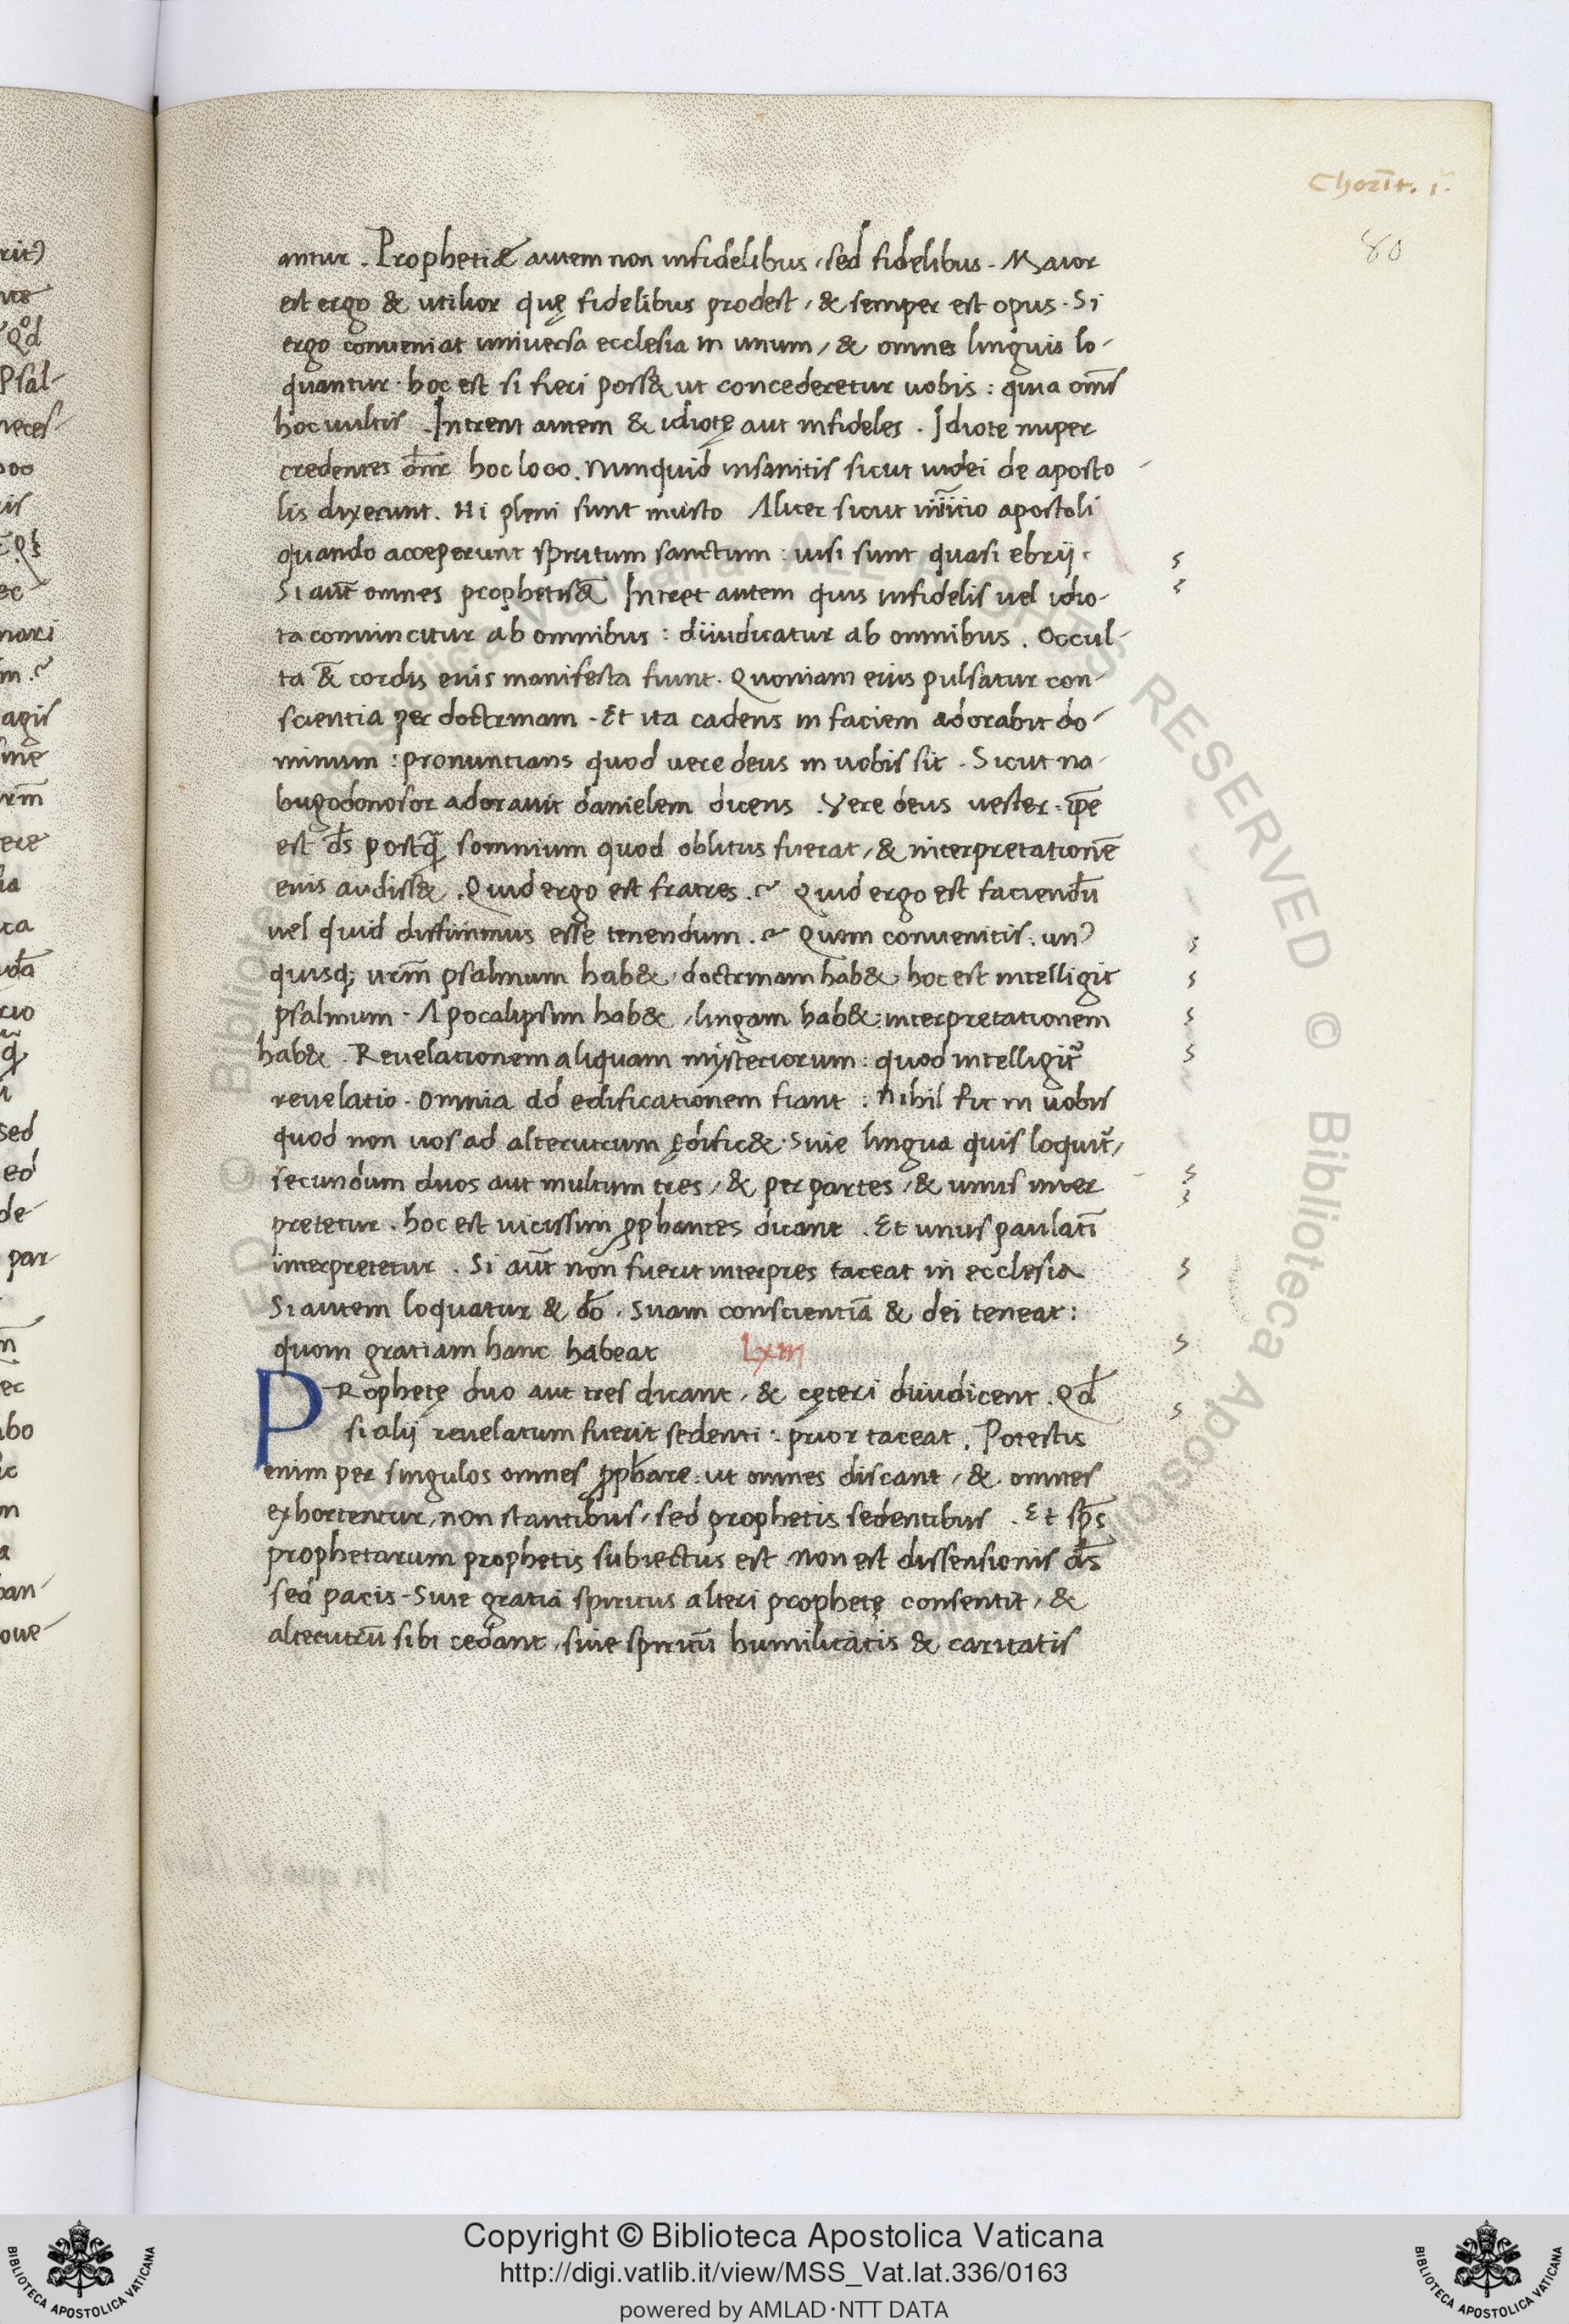 Chorīt. i.
80
antur . Prophetiæ autem non infidelibus, sed fidelibus . Maior
est ergo & utilior quę fidelibus prodest, & semper est opus . Si
ergo conveniat universa ecclesia in unum, & omnes linguis lo-
quantur . hoc est si fieri poss& ut concederetur uobis : quia om̄s
hoc uultis . Intrent autem & idiotę aut infideles . Idiote nuper
credentes dn̄r hoc loco . Nunquid insanitis sicut iudei de aposto
lis dixerunt . Hi pleni sunt musto Aliter sicut initio apostoli
quando acceperunt spiritum sanctum : uisi sunt quasi ebrij .
Si aut̄ omnes prophetis& Intret autem quis infidelis uel idio-
ta conuincitur ab omnibus : diiudicatur ab omnibus . Occul-
ta & cordis eius manifesta fiunt . Quoniam eius pulsatur con-
scientia per doctrinam . Et ita cadens in faciem adorabit do-
minum : pronuntians quod uere deus in uobis sit . Sicut na-
bugodonosor adorauit danielem dicens . Vere deus uester . ip̄e
est d̄s postq̄ somnium quod oblitus fuerat, & interpretationē
eius audiss& . Quid ergo est fratres . Quid ergo est faciendū
uel quid diffinimus esse tenendum . Quom conuenitis . un
quisq; urm̄ psalmum hab& doctrinam hab& hoc est intelligit
psalmum . Apocalipsim hab&, lingam hab& : interpretationem
hab& . Reuelationem aliquam mysteriorum : quod intelligit̄
reuelatio . Omnia ad edificationem fiant : Nihil fit in uobis
quod non uos ad alterutrum ędific& . Siue lingua quis loquit̄,
secundum duos aut multum tres, & per partes, & unus inter
pretetur . hoc est uicissim pphantes dicant . Et unus paulatī
interpretetur . Si aut̄ non fuerit interpres taceat in ecclesia
Si autem loquatur & dō . Suam conscientiā & dei teneat :
quom gratiam hanc habeat Lxm
PRophetę duo aut tres dicant, & cęteri diiudicent . Qd̄
si alij reuelatum fuerit sedenti : prior taceat . Potestis
enim per singulos omnes pph̄are . ut omnes discant, & omnes
exhortentur, non stantibus, sed prophetis sedentibus . Et sp̄s
prophetarum prophetis subiectus est Non est dissensionis d̄s
sed pacis . Siue gratia spiritus alteri prophetę consentit, &
alterutrū sibi cedant, siue spiritū humilitatis & caritatis
Copyright © Biblioteca Apostolica Vaticana
http://digi.vatlib.it/view/MSS_Vat.lat.336/0163
powered by AMLAD·NTT DATA
BIBLIOTECA APOSTOLICA VATICANA
BIBLIOTECA APOSTOLICA VATICANA